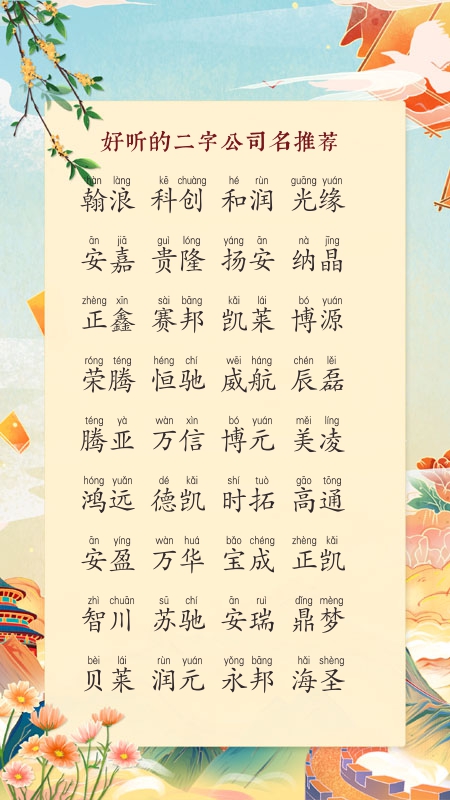 好听的二字公司名推荐
hàn làng kē chuàng hé rùn guāng yuán
翰浪 科创 和润 光缘
ān jiā guì lóng yáng ān nà jīng
安嘉 贵隆 扬安 纳晶
zhèng xīn sài bāng kǎi lái bó yuán
正鑫 赛邦 凯莱 博源
róng téng héng chí wēi háng chén lěi
荣腾 恒驰 威航 辰磊
téng yà wàn xìn bó yuán měi líng
腾亚 万信 博元 美凌
hóng yuǎn dé kǎi shí tuò gāo tōng
鸿远 德凯 时拓 高通
ān yíng wàn huá bǎo chéng zhèng kǎi
安盈 万华 宝成 正凯
zhì chuān sū chí ān ruì dǐng mèng
智川 苏驰 安瑞 鼎梦
bèi lái rùn yuán yǒng bāng hǎi shèng
贝莱 润元 永邦 海圣